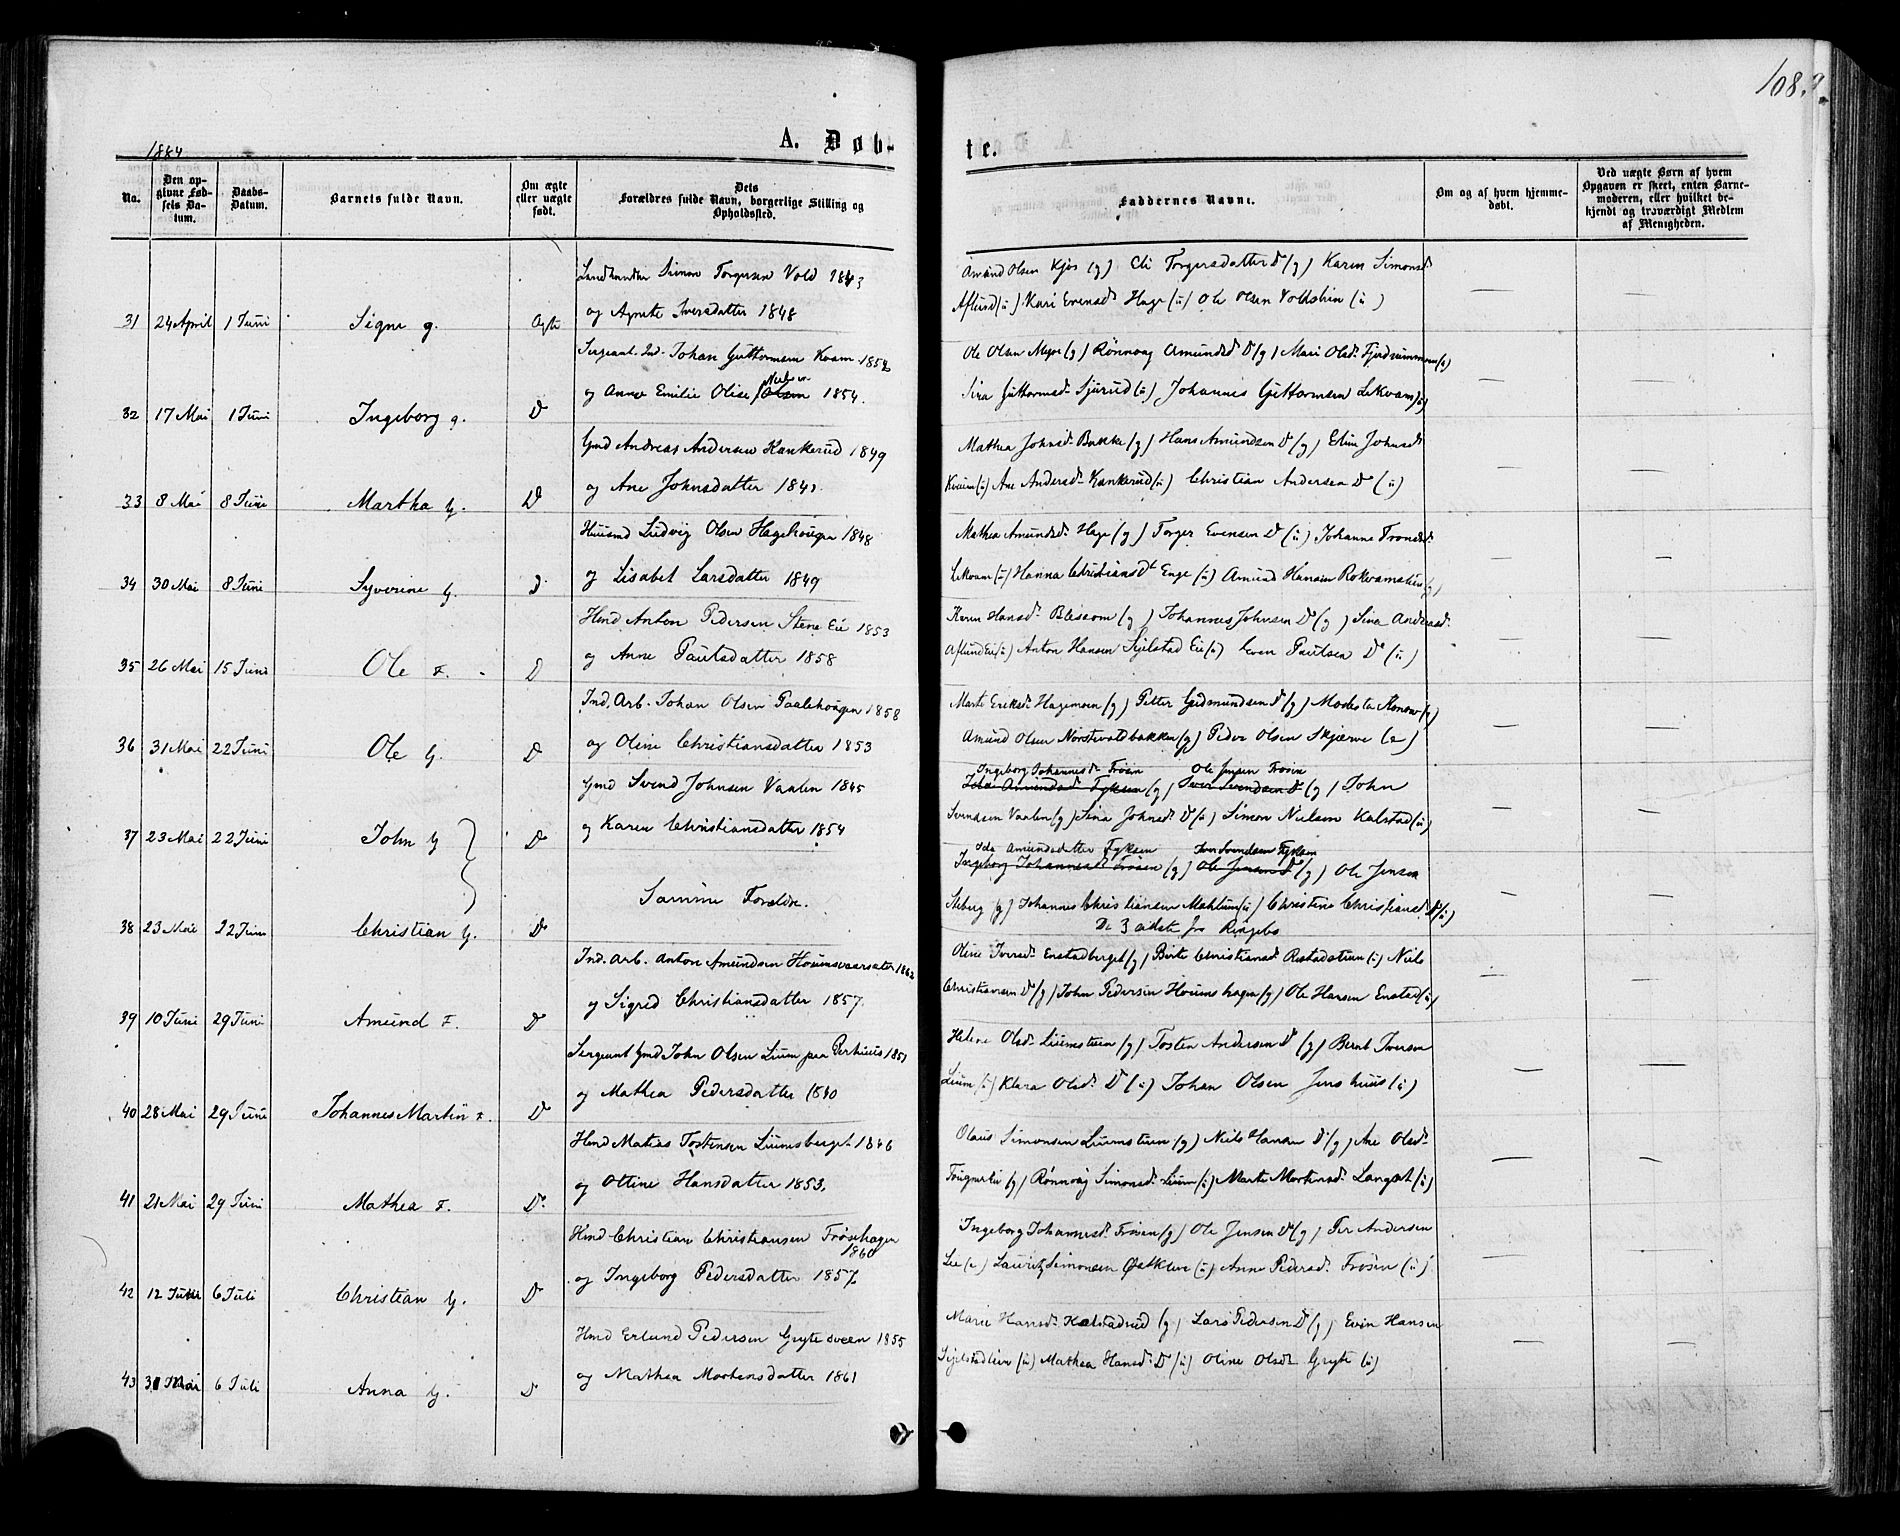 108.
1884.
A. Døb-
te.
No.
Den opgivne Fødsels Datum.
Daabs-Datum.
Barnets fulde Navn.
Om ægte eller uægte født.
Dets Forældres fulde Navn, borgerlige Stilling og Opholdssted.
Faddernes Navne.
Om og af hvem hjemmedøbt.
Ved uægte Børn af hvem Opgaven er skeet, enten Barnemoderen, eller hvilket bekjendt og troværdigt Medlem af Menigheden.
Landhandler Simon Torgersen Vold 1843
Amund Olsen Kjos (g) Eli Torgersdatter D (g) Karen Simonsd
31 24 April 1 Juni Signe g. Ægte og Agnete Iversdatter 1848
Aflund (u) Kari Evensd. Hage (u) Ole Olsen (u)
Sergeant Ind. Johan Guttormsen Kvam 1852
Ole Olsen Myre (g) Rønnoug Amundsd D (g) Mari Olsd.
32 17 Mai 1 Juni Ingeborg g. D og Anne Emilie Olise Olsen 1854.
Guttormsd. Sjurud (u) Johannes Guttormsen Lekvam (u)
Gmd Andreas Andersen Kankerud 1849
Mathea Johnsd. Bakke (g) Hans Amundsen D (g) Elin Johnsd
33 8 Mai 8 Juni Martha g. D og Ane Johnsdatter 1841.
Kvium (u) Ane Andersd. Kankerud (u) Christian Andersen D (u)
Huusmd Ludvig Olsen Hagehougen 1848
Mathea Amundsd. Hage (g) Torger Evensen D (u) Johanne Tronds.
34 30 Mai 8 Juni Syverine g. D. og Lisabet Larsdatter 1849
Lekvam (u) Hanna Christiansd Enge (u) Amund Hansen (g)
Hmd Anton Pedersen Stene Eie 1853
Karen Hansd. Blessom (g) Johannes Johnsen D (g) Sina Andersd.
35 26 Mai 15 Juni Ole F. D og Anne Paulsdatter 1858
Aflund Eie (u) Anton Hansen Sylstad Eie (u) Even Paulsen D (u)
Ind. Arb. Johan Olsen Paalehougen 1858
Marte Eriksd. Hagemoen (g) Petter Gudmundsen D (g) Modesta (g)
36 31 Mai 22 Juni Ole g. D og Oline Christiansdatter 1853
Amund Olsen Norstevoldbakken (g) Peder Olsen Skjærve (u)
Ingeborg Johannesd. Frøsin Ole Jensen Frosin
Gmd Svend Johnsen Vaalen 1845
Amundsd. Fyksen (g) Iver Svendsen D (g) John
37 23 Mai 22 Juni John g D og Karen Christiansdatter 1854
Svendsen Vaalen (g) Sina Johnsd. D (u) Simon Nielsen Kalstad (u)
Amundsdatter Fyksen Iver Svendsen Fyksen
Ingeborg Johannesd. Frøsin (g) Ole Jensen D (g) Ole Jensen
Samme Foreldre.
38 23 Mai 22 Juni Christian g. D
Steberg (g) Johannes Christiansen Mæhlum (u) Christine Christiansd D (u)
De 3 sidste fra Ringebo
Ind. Arb. Anton Amundsen 1862
Oline Iversd. Enstadberget (g) Birte Christiansd. (u) Niels
39 10 Juni 29 Juni Amund F. D og Sigrid Christiansdatter 1857.
Christiansen D (g) John Pedersen Houmshagen (g) Ole Hansen Enstad (u)
Sergeant Gmd John Olsen Lium paa Perhuus 1851
Helene Olsd. Liumstuen (g) Tosten Andersen D (g) Bernt Iversen
40 28 Mai 29 Juni Johannes Martin F. D og Mathea Pedersdatter 1840
Lium (u) Klara Olsd. D (u) Johan Olsen Jenshuus (u)
Hmd Matias Tostensen Liumsberget 1846
Olaus Simonsen Liumstuen (g) Niels Hansen D (g) Ane Olsd.
41 21 Mai 29 Juni Mathea F. D. og Ottine Hansdatter 1853.
Fougnerlie (g) Rønnoug Simonsd. Lium (u) Marte Mortensd. Langset (u)
Hmd Christian Christiansen Frøsehagen 1860
Ingeborg Johannesd. Frøsin (g) Ole Jensen D (g) Per Andersen
42 12 Juni 6 Juli Christian g. D og Ingeborg Pedersdatter 1857.
Lie (u) Lauritz Simonsen Østkleve (u) Anne Pedersd. Frøsin (u)
Hmd Erlend Pedersen Grytesveen 1855
Marie Hansd. Kalstadrud (g) Lars Pedersen D (g) Even Hansen
43 31 Mai 6 Juli Anna g. D og Mathea Mortensdatter 1861
Sylstadlien (u) Mathea Hansd. D (u) Oline Olsd Gryte (u)